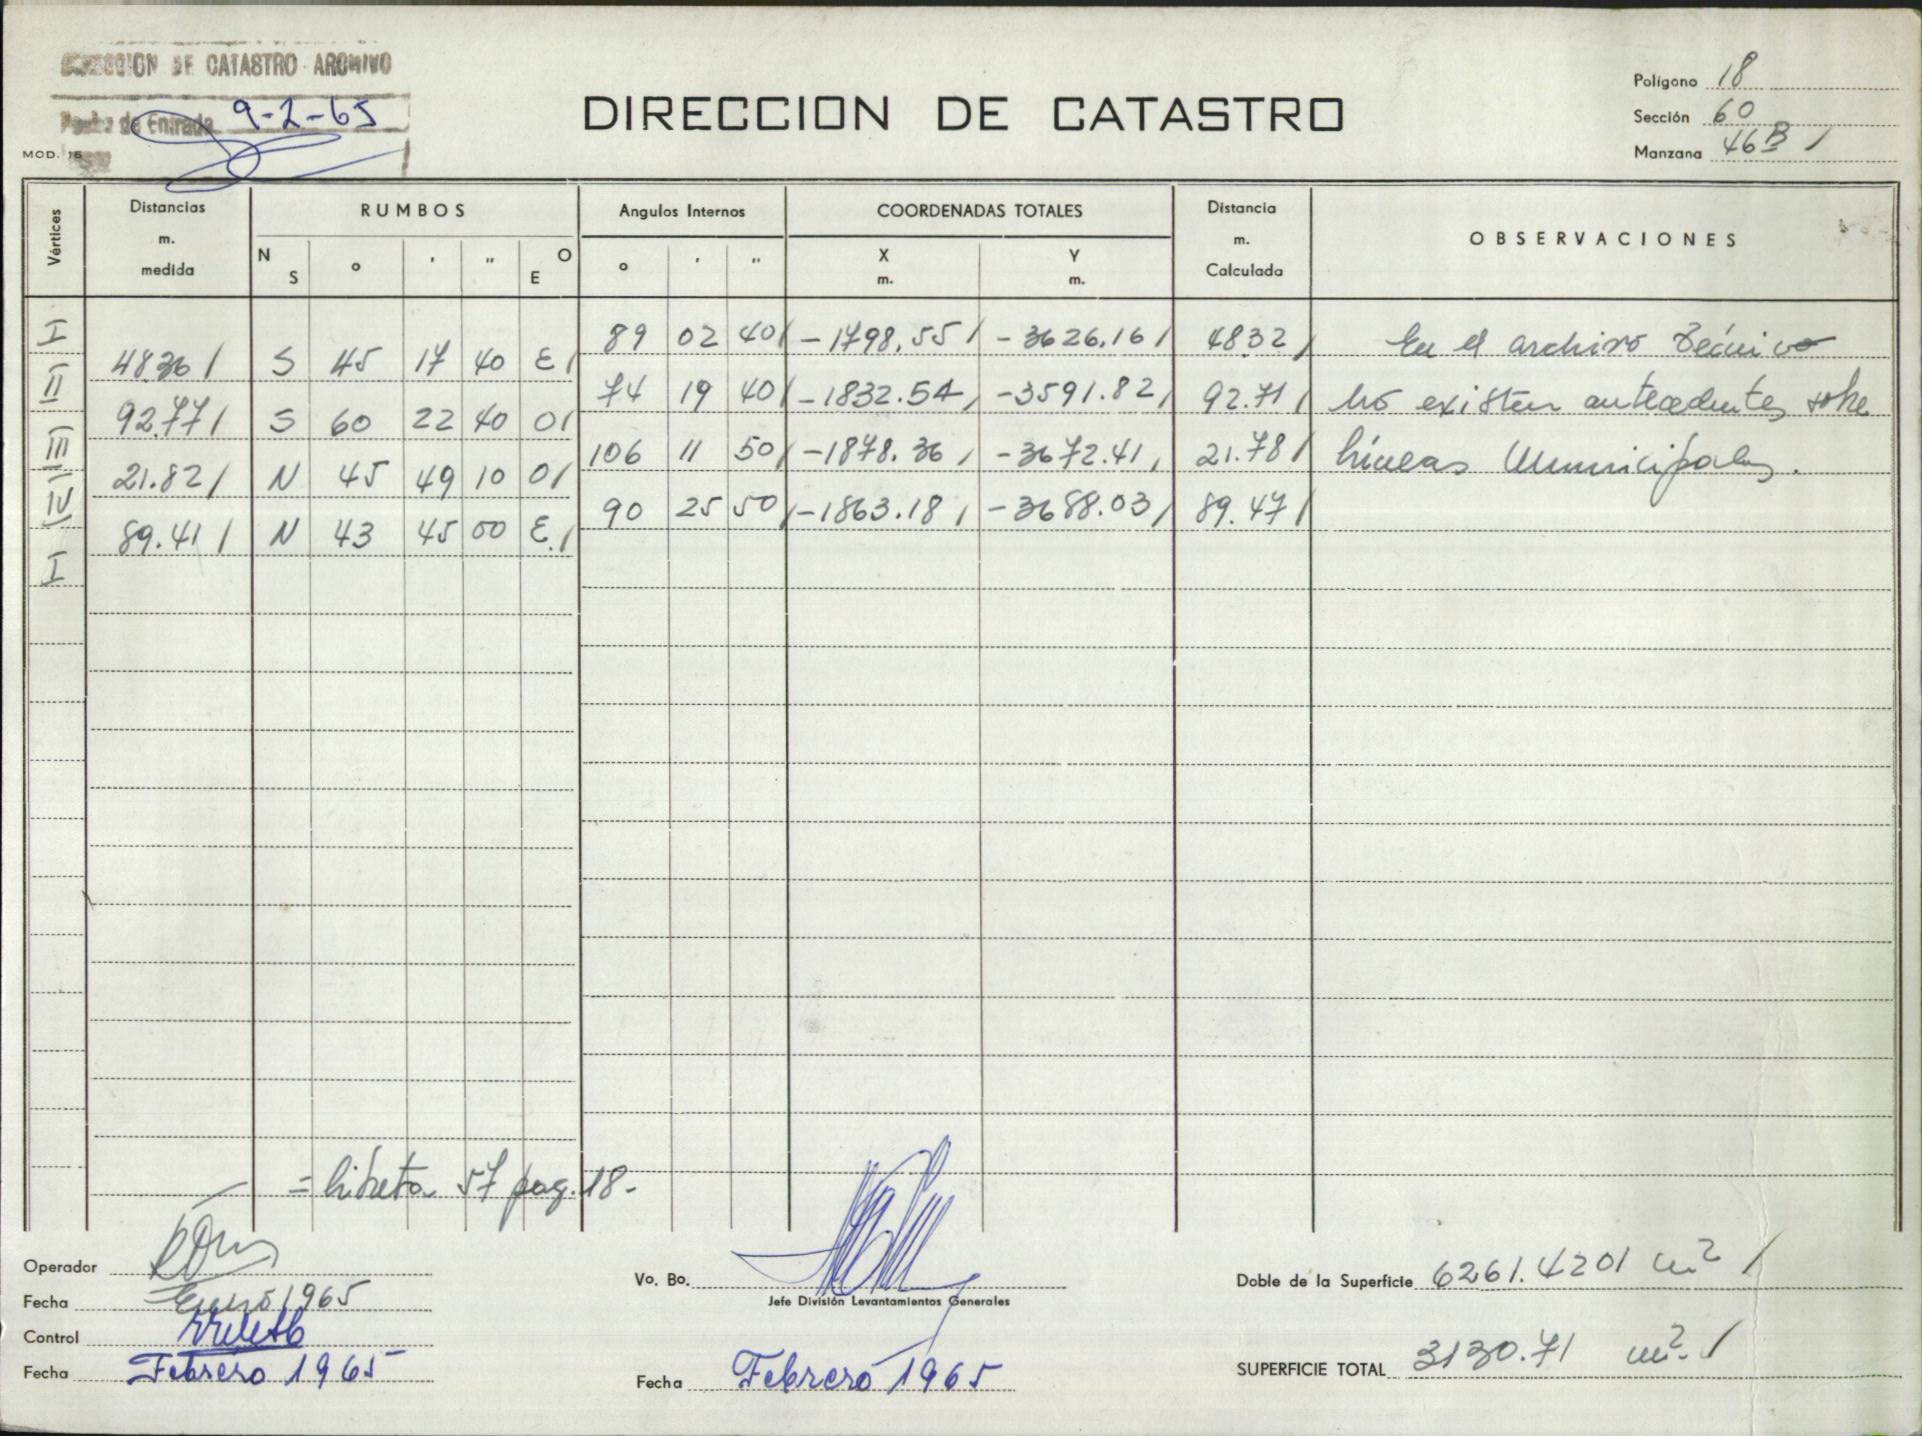 DIRECCION DE CATASTRO ARCHIVO
Fecha de Entrada 9-2-65
MOD. 16
DIRECCION DE CATASTRO
Polígono 18
Sección 60
Manzana 46B /
Vértices
Distancias m. medida
RUMBOS
N S ° ' " O E
Angulos Internos
° ' "
COORDENADAS TOTALES
X m. Y m.
Distancia m. Calculada
OBSERVACIONES
I 89 02 40/ -1798.55/ -3626.16/ 48.32/ En el archivo Técnico
48.36/ S 45 17 40 E/
II 74 19 40/ -1832.54/ -3591.82/ 92.71/ no existen antecedentes sobre
92.77/ S 60 22 40 O/
III 106 11 50/ -1878.36/ -3672.41/ 21.78/ líneas Municipales.
21.82/ N 45 49 10 O/
IV 90 25 50/ -1863.18/ -3688.03/ 89.47/
89.41/ N 43 45 00 E/
I
= libreta 57 pag. 18-
Operador
Fecha Enero 1965
Control
Fecha Febrero 1965
Vo. Bo.
Jefe División Levantamientos Generales
Fecha Febrero 1965
Doble de la Superficie 6261.4201 m² /
SUPERFICIE TOTAL 3130.71 m². /